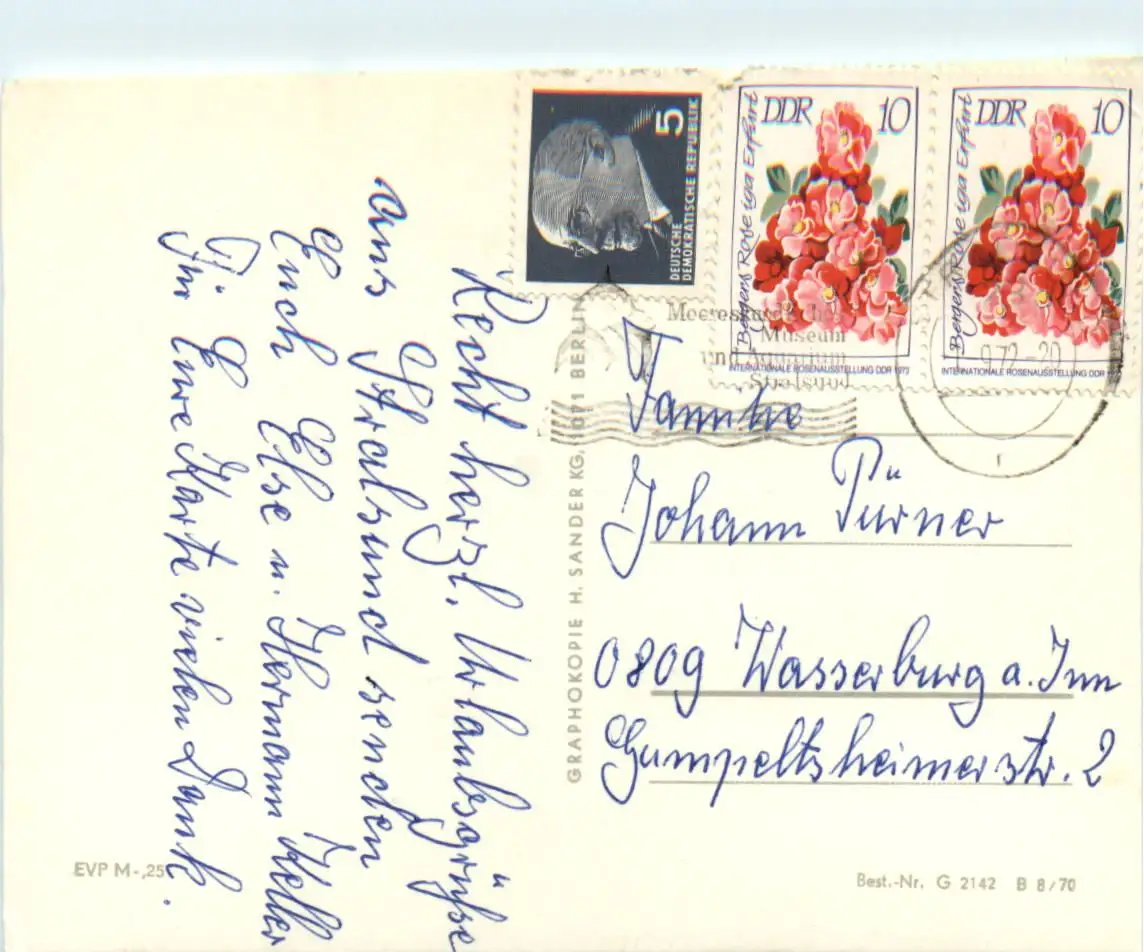 Recht herzl. Urlaubsgrüße
aus Stralsund senden
Euch Else u. Hermann Keller
Für Eure Karte vielen Dank.
EVP M-,25
GRAPHOKOPIE H. SANDER KG, 1071 BERLIN
5
DEUTSCHE
DEMOKRATISCHE REPUBLIK
DDR 10
Bergers Rose iga Erfurt
INTERNATIONALE ROSENAUSSTELLUNG DDR 1972
DDR 10
Bergers Rose iga Erfurt
INTERNATIONALE ROSENAUSSTELLUNG DDR
Meereskundliches
Museum
und Aquarium
Stralsund
9.72-20
r
Familie
Johann Pürner
0809 Wasserburg a. Inn
Gumpeltsheimerstr. 2
Best.-Nr. G 2142 B 8/70